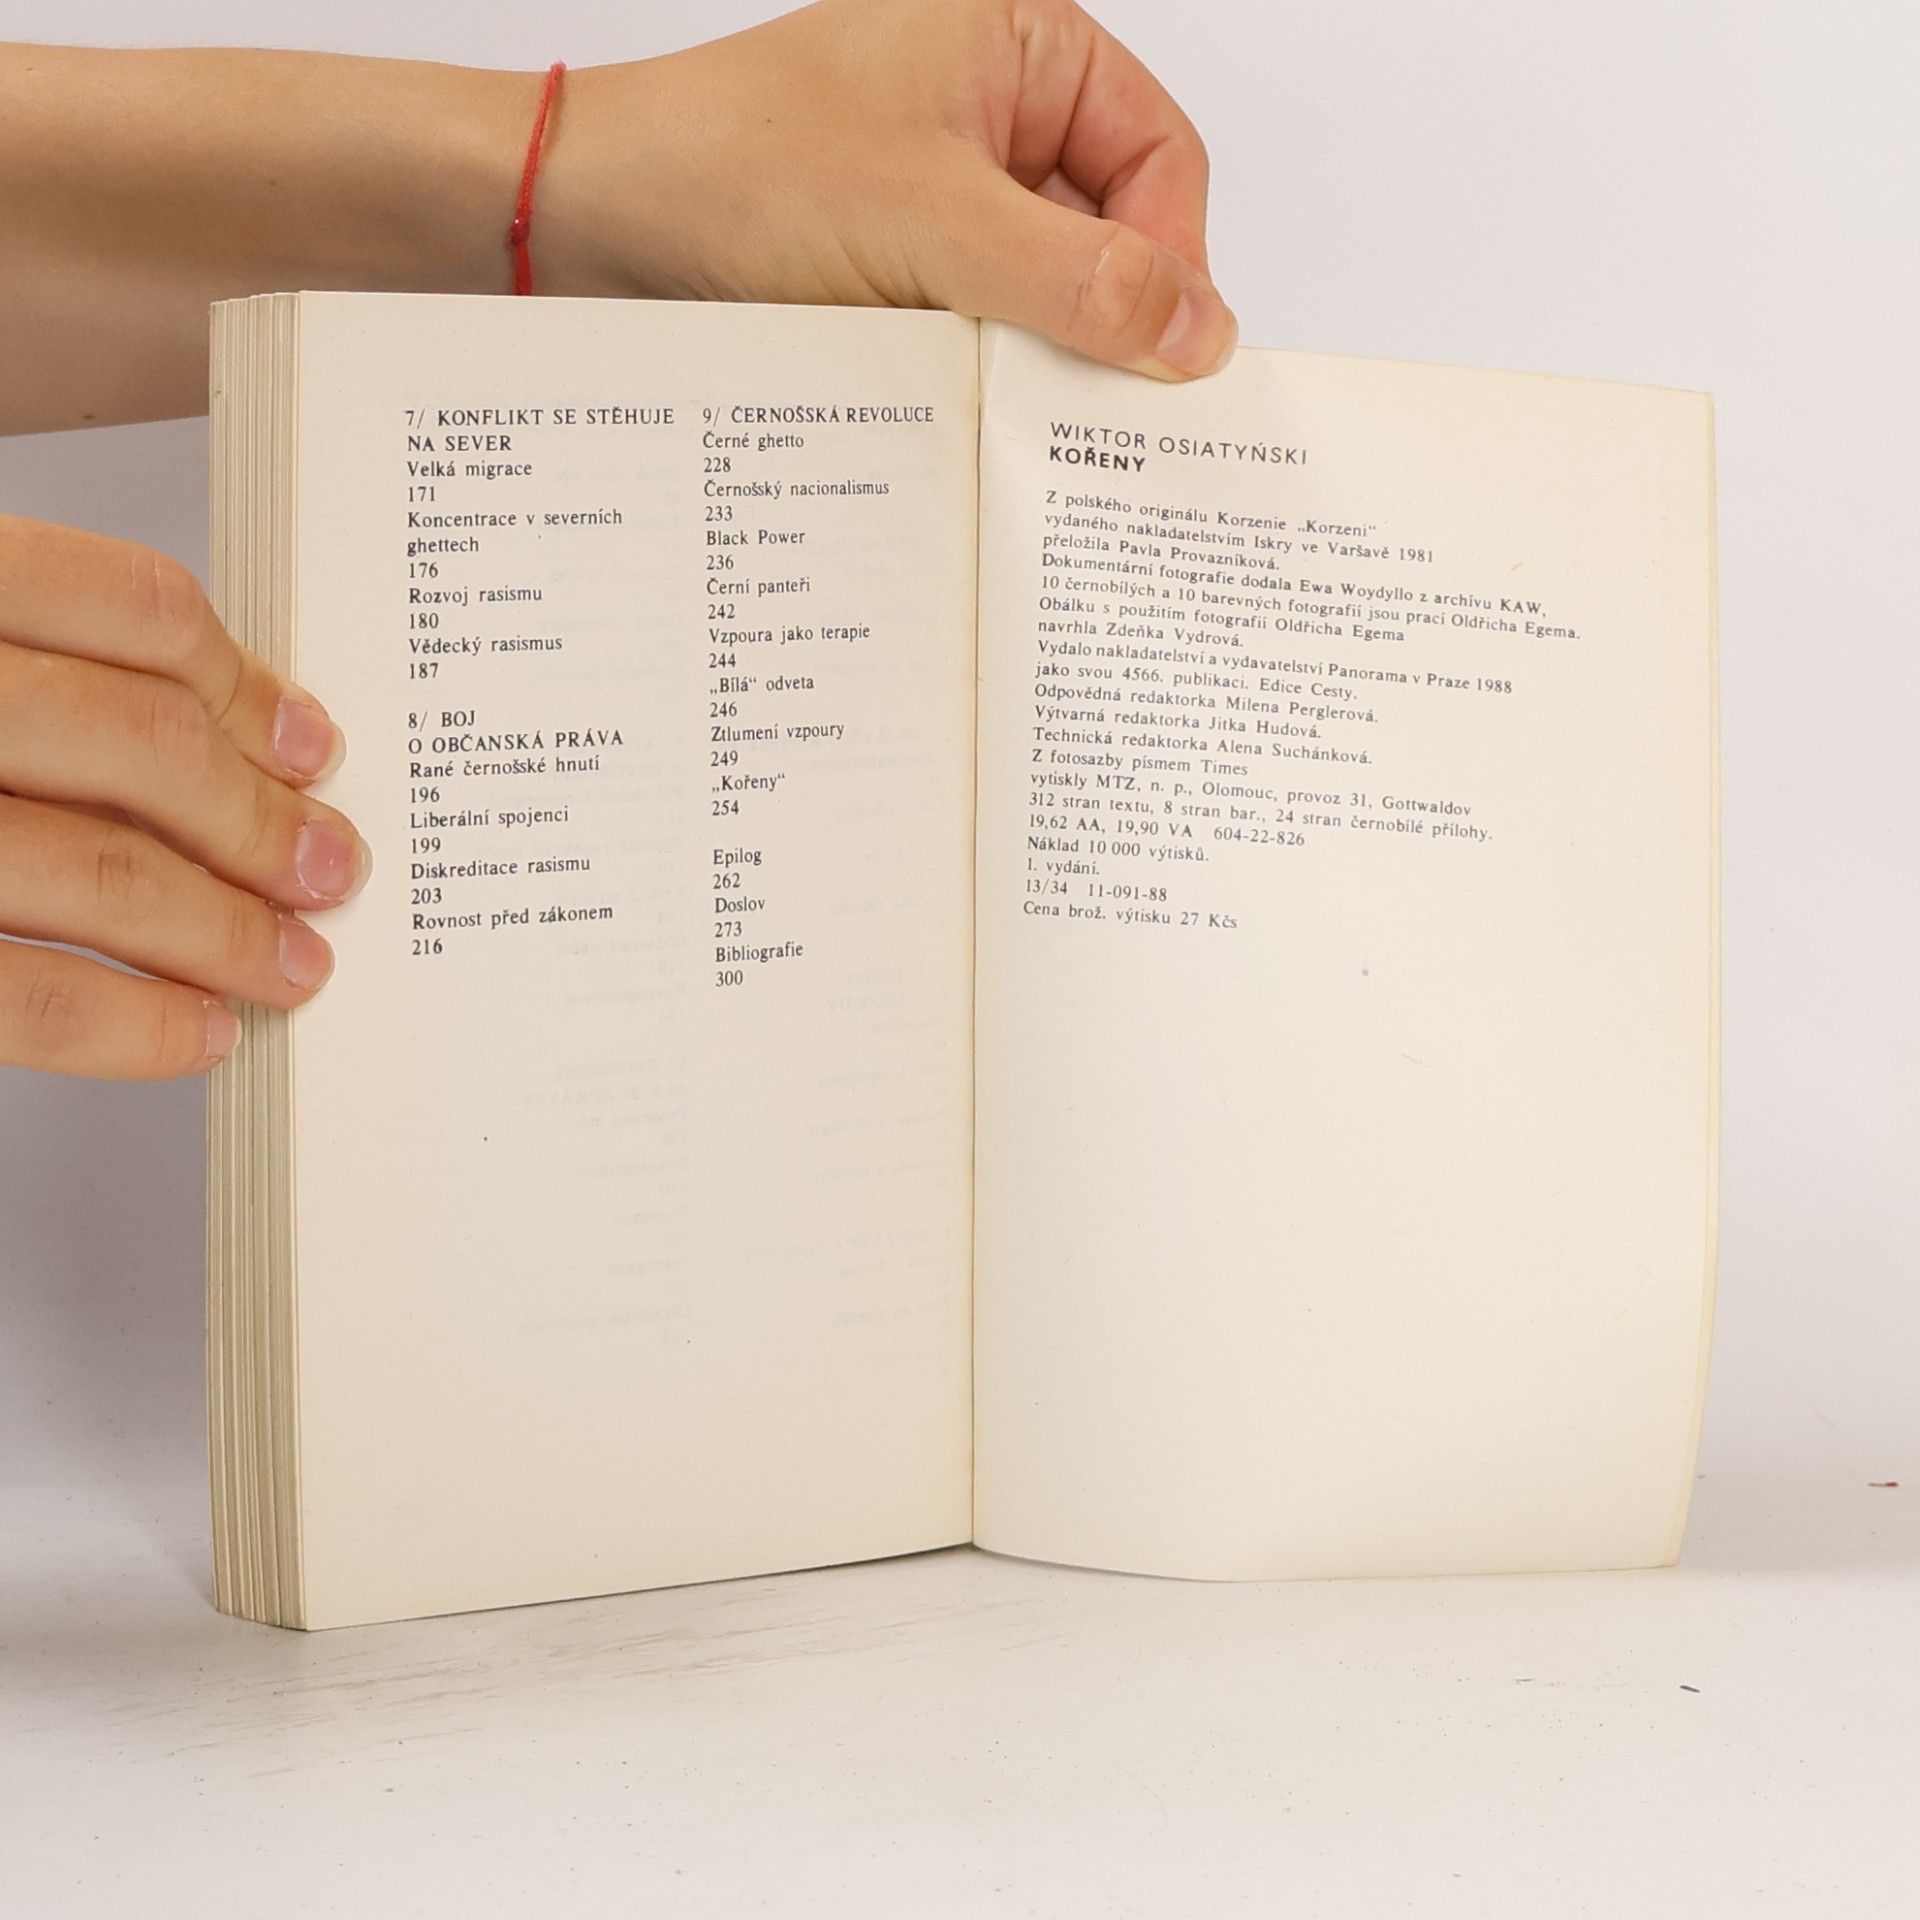 7/ KONFLIKT SE STĚHUJE
NA SEVER
Velká migrace
171
Koncentrace v severních
ghettech
176
Rozvoj rasismu
180
Vědecký rasismus
187
8/ BOJ
O OBČANSKÁ PRÁVA
Rané černošské hnutí
196
Liberální spojenci
199
Diskreditace rasismu
203
Rovnost před zákonem
216
9/ ČERNOŠSKÁ REVOLUCE
Černé ghetto
228
Černošský nacionalismus
233
Black Power
236
Černí panteři
242
Vzpoura jako terapie
244
„Bílá“ odveta
246
Ztlumení vzpoury
249
„Kořeny“
254
Epilog
262
Doslov
273
Bibliografie
300
WIKTOR OSIATYŃSKI
KOŘENY
Z polského originálu Korzenie „Korzeni“
vydaného nakladatelstvím Iskry ve Varšavě 1981
přeložila Pavla Provazníková.
Dokumentární fotografie dodala Ewa Woydyllo z archívu KAW,
10 černobílých a 10 barevných fotografií jsou prací Oldřicha Egema.
Obálku s použitím fotografií Oldřicha Egema
navrhla Zdeňka Vydrová.
Vydalo nakladatelství a vydavatelství Panorama v Praze 1988
jako svou 4566. publikaci. Edice Cesty.
Odpovědná redaktorka Milena Perglerová.
Výtvarná redaktorka Jitka Hudová.
Technická redaktorka Alena Suchánková.
Z fotosazby písmem Times
vytiskly MTZ, n. p., Olomouc, provoz 31, Gottwaldov
312 stran textu, 8 stran bar., 24 stran černobílé přílohy.
19,62 AA, 19,90 VA 604-22-826
Náklad 10 000 výtisků.
1. vydání.
13/34 11-091-88
Cena brož. výtisku 27 Kčs